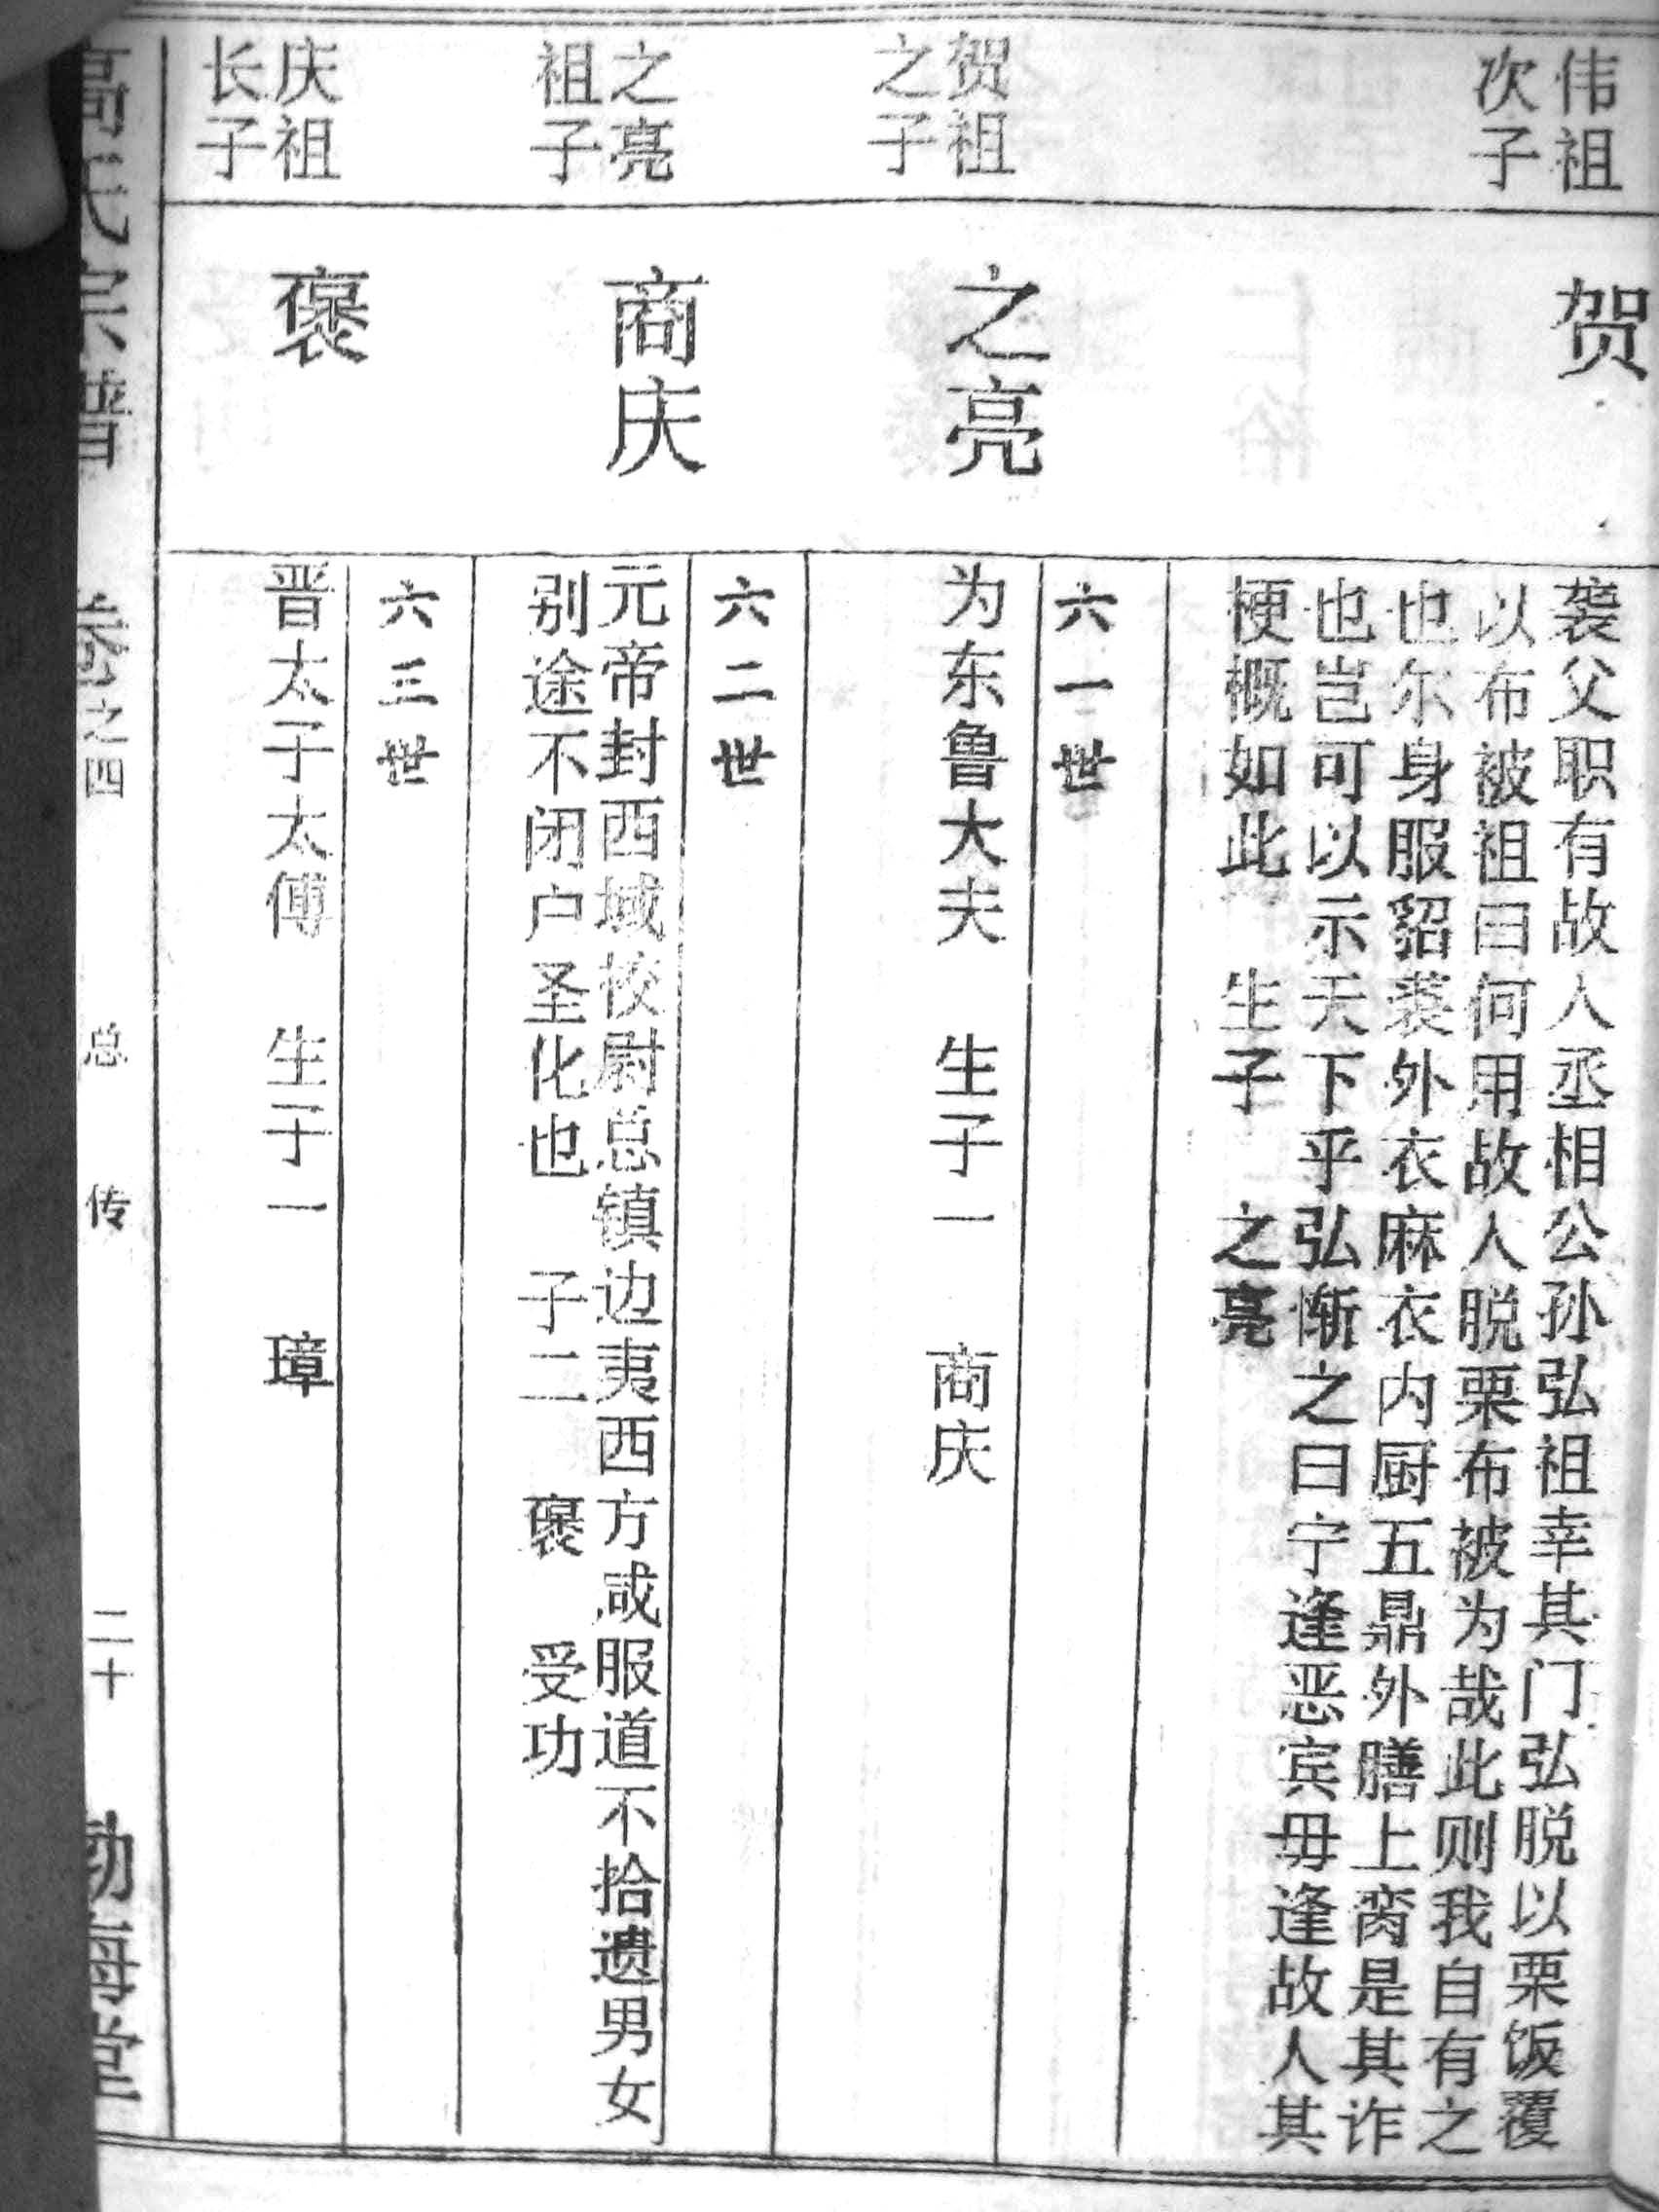 伟祖
次子
贺
袭父职有故人丞相公孙弘祖幸其门弘脱以栗饭覆
以布被祖曰何用故人脱栗布被为哉此则我自有之
也尔身服貂裘外衣麻衣内厨五鼎外膳上脔是其诈
也岂可以示天下乎弘惭之曰宁逢恶宾毋逢故人其
梗概如此 生子 之亮
六一世
贺祖
之子
之亮
为东鲁大夫 生子一 商庆
六二世
之亮
祖子
商庆
元帝封西域校尉总镇边夷西方咸服道不拾遗男女
别途不闭户圣化也 子二 褒 受功
六三世
庆祖
长子
褒
晋太子太傅 生子一 璋
高氏宗谱 卷之四 总传 二十 渤海堂